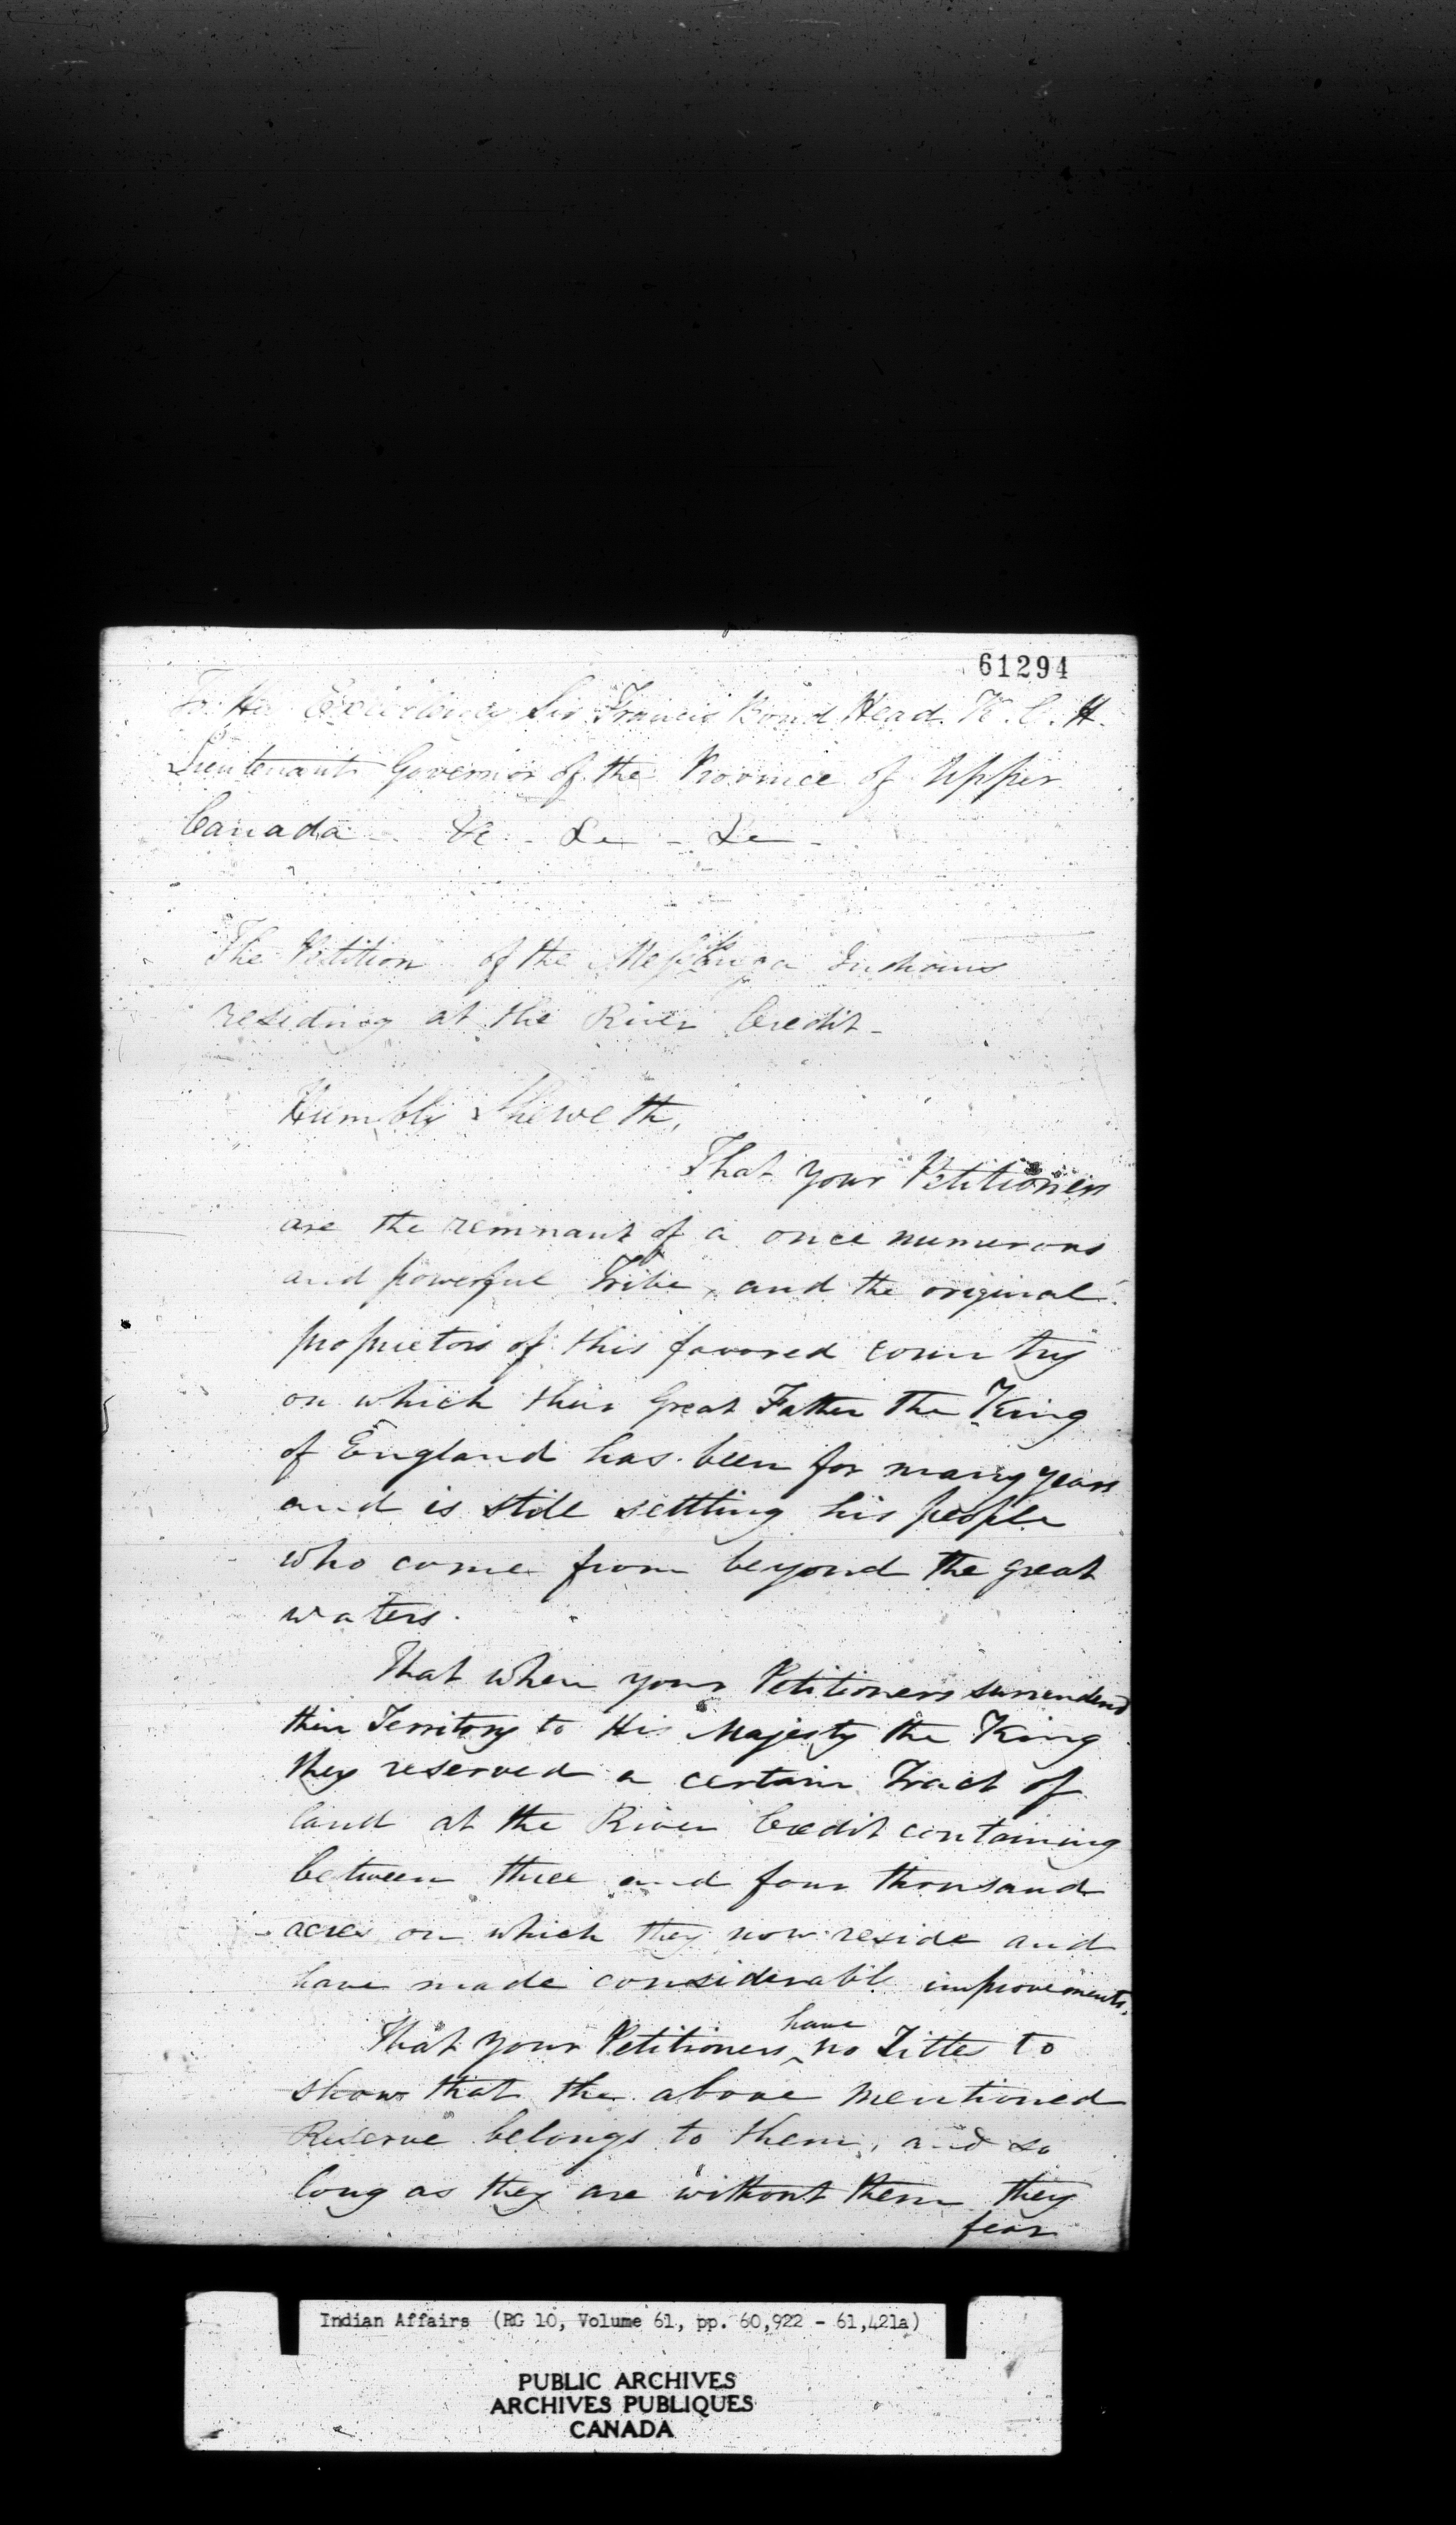 61294
To His Excellency Sir Francis Bond Head. K. C. H.
Lieutenant Governor of the Province of Upper
Canada - &c - &c - &c -
The Petition of the Messisauga Indians
residing at the River Credit -
Humbly Sheweth,
That your Petitioners
are the remnant of a once numerous
and powerful Tribe, and the original
proprietors of this favored country
on which their Great Father the King
of England has been for many years
and is still settling his people
who come from beyond the great
waters.
That when your Petitioners surrendered
their Territory to His Majesty the King
they reserved a certain Tract of
land at the River Credit containing
between three and four thousand
acres on which they now reside and
have made considerable improvements.
That your Petitioners ^have no Titles to
show that the above mentioned
Reserve belongs to them, and so
long as they are without them they
fear
Indian Affairs (RG 10, Volume 61, pp. 60,922 - 61,421a)
PUBLIC ARCHIVES
ARCHIVES PUBLIQUES
CANADA